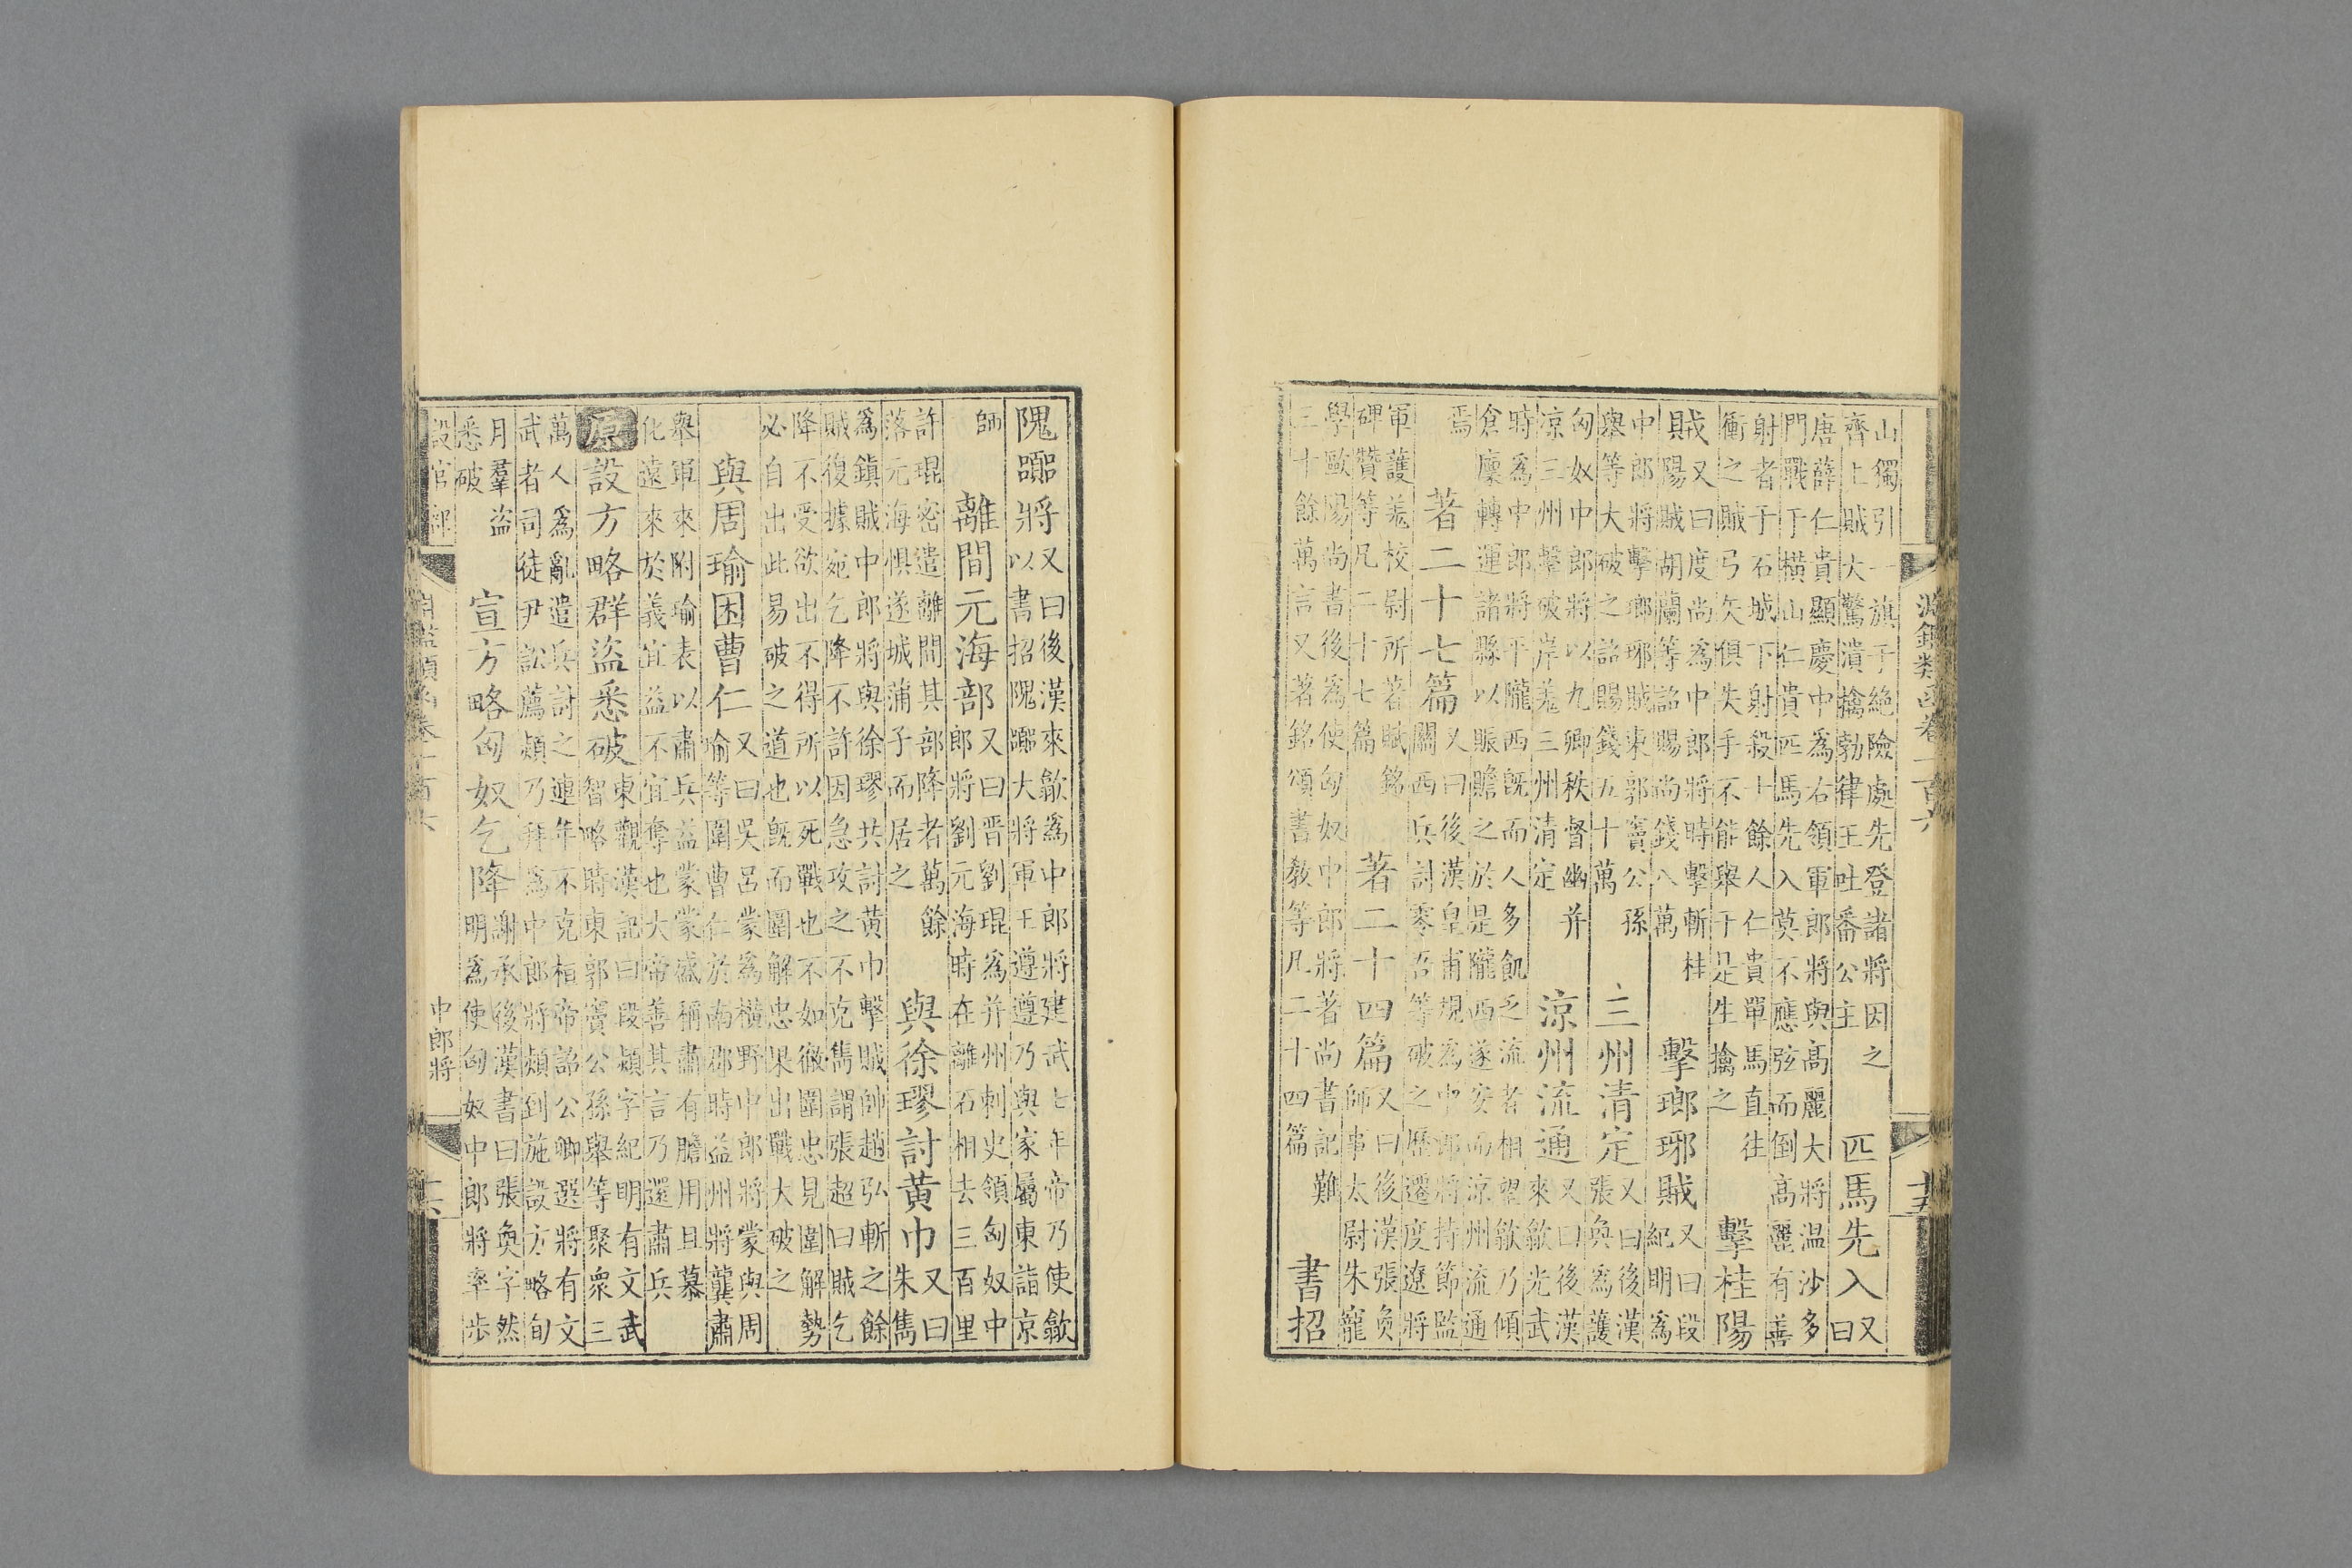 淵鑑類函卷一百六 十五
山獨引一旗于絶險處先登諸將因之
齊上賊大驚潰擒勃律王吐番公主
匹馬先入
又
曰
唐薛仁貴顯慶中爲右領軍郎將與高麗大將温沙多
門戰于横山仁貴匹馬先入莫不應弦而倒高麗有善
射者于石城下射殺十餘人仁貴單馬直往
衝之賊弓矢俱失手不能舉于是生擒之
擊桂陽
賊
又曰度尚爲中郎將時擊斬桂
陽賊胡蘭等詔賜尚錢八萬
擊瑯琊賊
又曰段
紀明爲
中郎將擊瑯琊賊東郭竇公孫
舉等大破之詔賜錢五十萬
三州清定
又曰後漢
張奐爲護
匈奴中郎將以九卿秩督幽并
凉三州擊破岸羌三州清定
凉州流通
又曰後漢
來歙光武
時爲中郎將平隴西旣而人多飢乏流者相望歙乃傾
倉廩轉運諸縣以賑贍之於是隴西遂安而凉州流通
焉
著二十七篇
又曰後漢皇甫規爲中郎將持節監
關西兵討零吾等破之歷遷度遼將
軍護羌校尉所著賦銘
碑贊等凡二十七篇
著二十四篇
又曰後漢張奐
師事太尉朱寵
學歐陽尚書後爲使匈奴中郎將著尚書記難
三十餘萬言又著銘頌書敎等凡二十四篇
書招
隗囂將
又曰後漢來歙爲中郎將建武七年帝乃使歙
以書招隗囂大將軍王遵遵乃與家屬東詣京
師
離間元海部
又曰晋劉琨爲并州刺史領匈奴中
郎將劉元海時在離石相去三百里
許琨密遣離間其部降者萬餘
落元海惧遂城蒲子而居之
與徐璆討黄巾
又曰
朱雋
爲鎮賊中郎將與徐璆共討黄巾擊賊帥趙弘斬之餘
賊復據宛乞降不許因急攻之不克雋謂張超曰賊乞
降不受欲出不得所以死戰也不如徹圍忠見圍解勢
必自出此易破之道也旣而圍解忠果出戰大破之
與周瑜困曹仁
又曰吳呂蒙爲横野中郎將蒙與周
瑜等圍曹仁於南郡時益州將龔肅
舉軍來附瑜表以肅兵益蒙蒙盛稱肅有膽用且慕
化遠來於義宜益不宜奪也大帝善其言乃還肅兵
原
設方略群盜悉破
東觀漢記曰段熲字紀明有文武
智略時東郭竇公孫舉等聚衆三
萬人爲亂遣兵討之連年不克桓帝詔公卿選將有文
武者司徒尹訟薦熲乃拜爲中郎將熲到施設方略旬
月羣盜
悉破
宣方略匈奴乞降
謝承後漢書曰張奐字然
明爲使匈奴中郎將率步
設官部 淵鑑類函卷一百六 中郎將 十六